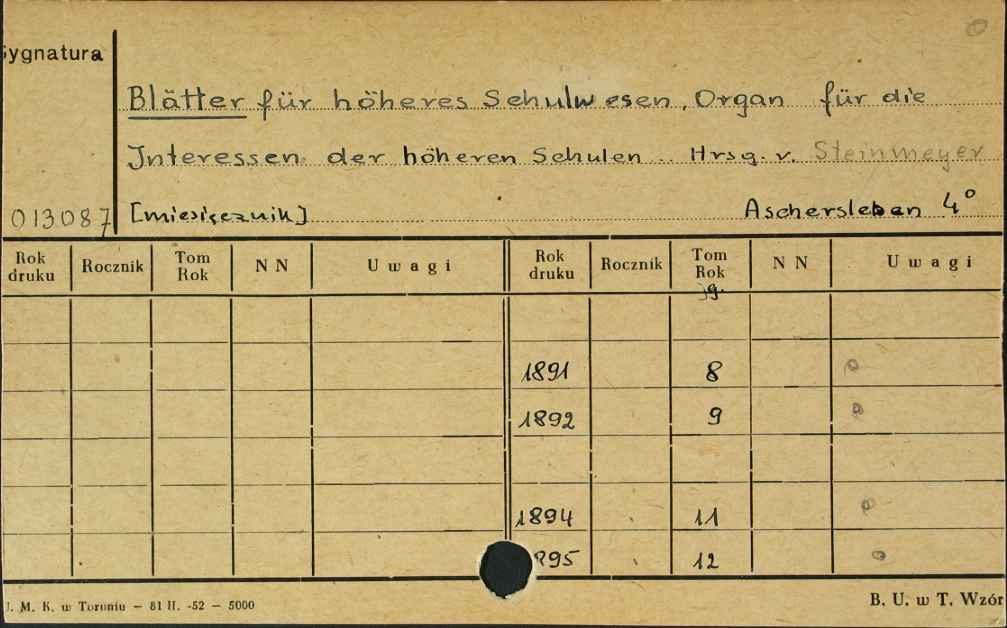 Sygnatura
Blätter für höheres Schulwesen, Organ für die
Interessen der höheren Schulen Hrsg. v. Steinmeyer
013087 [miesięcznik] Aschersleben 4°
Rok druku Rocznik Tom Rok NN Uwagi Rok druku Rocznik Tom Rok NN Uwagi
jg.
1891 8
1892 9
1894 11
895 12
J. M. K. w Toruniu – 81 II. -52 – 5000 B. U. w T. Wzór